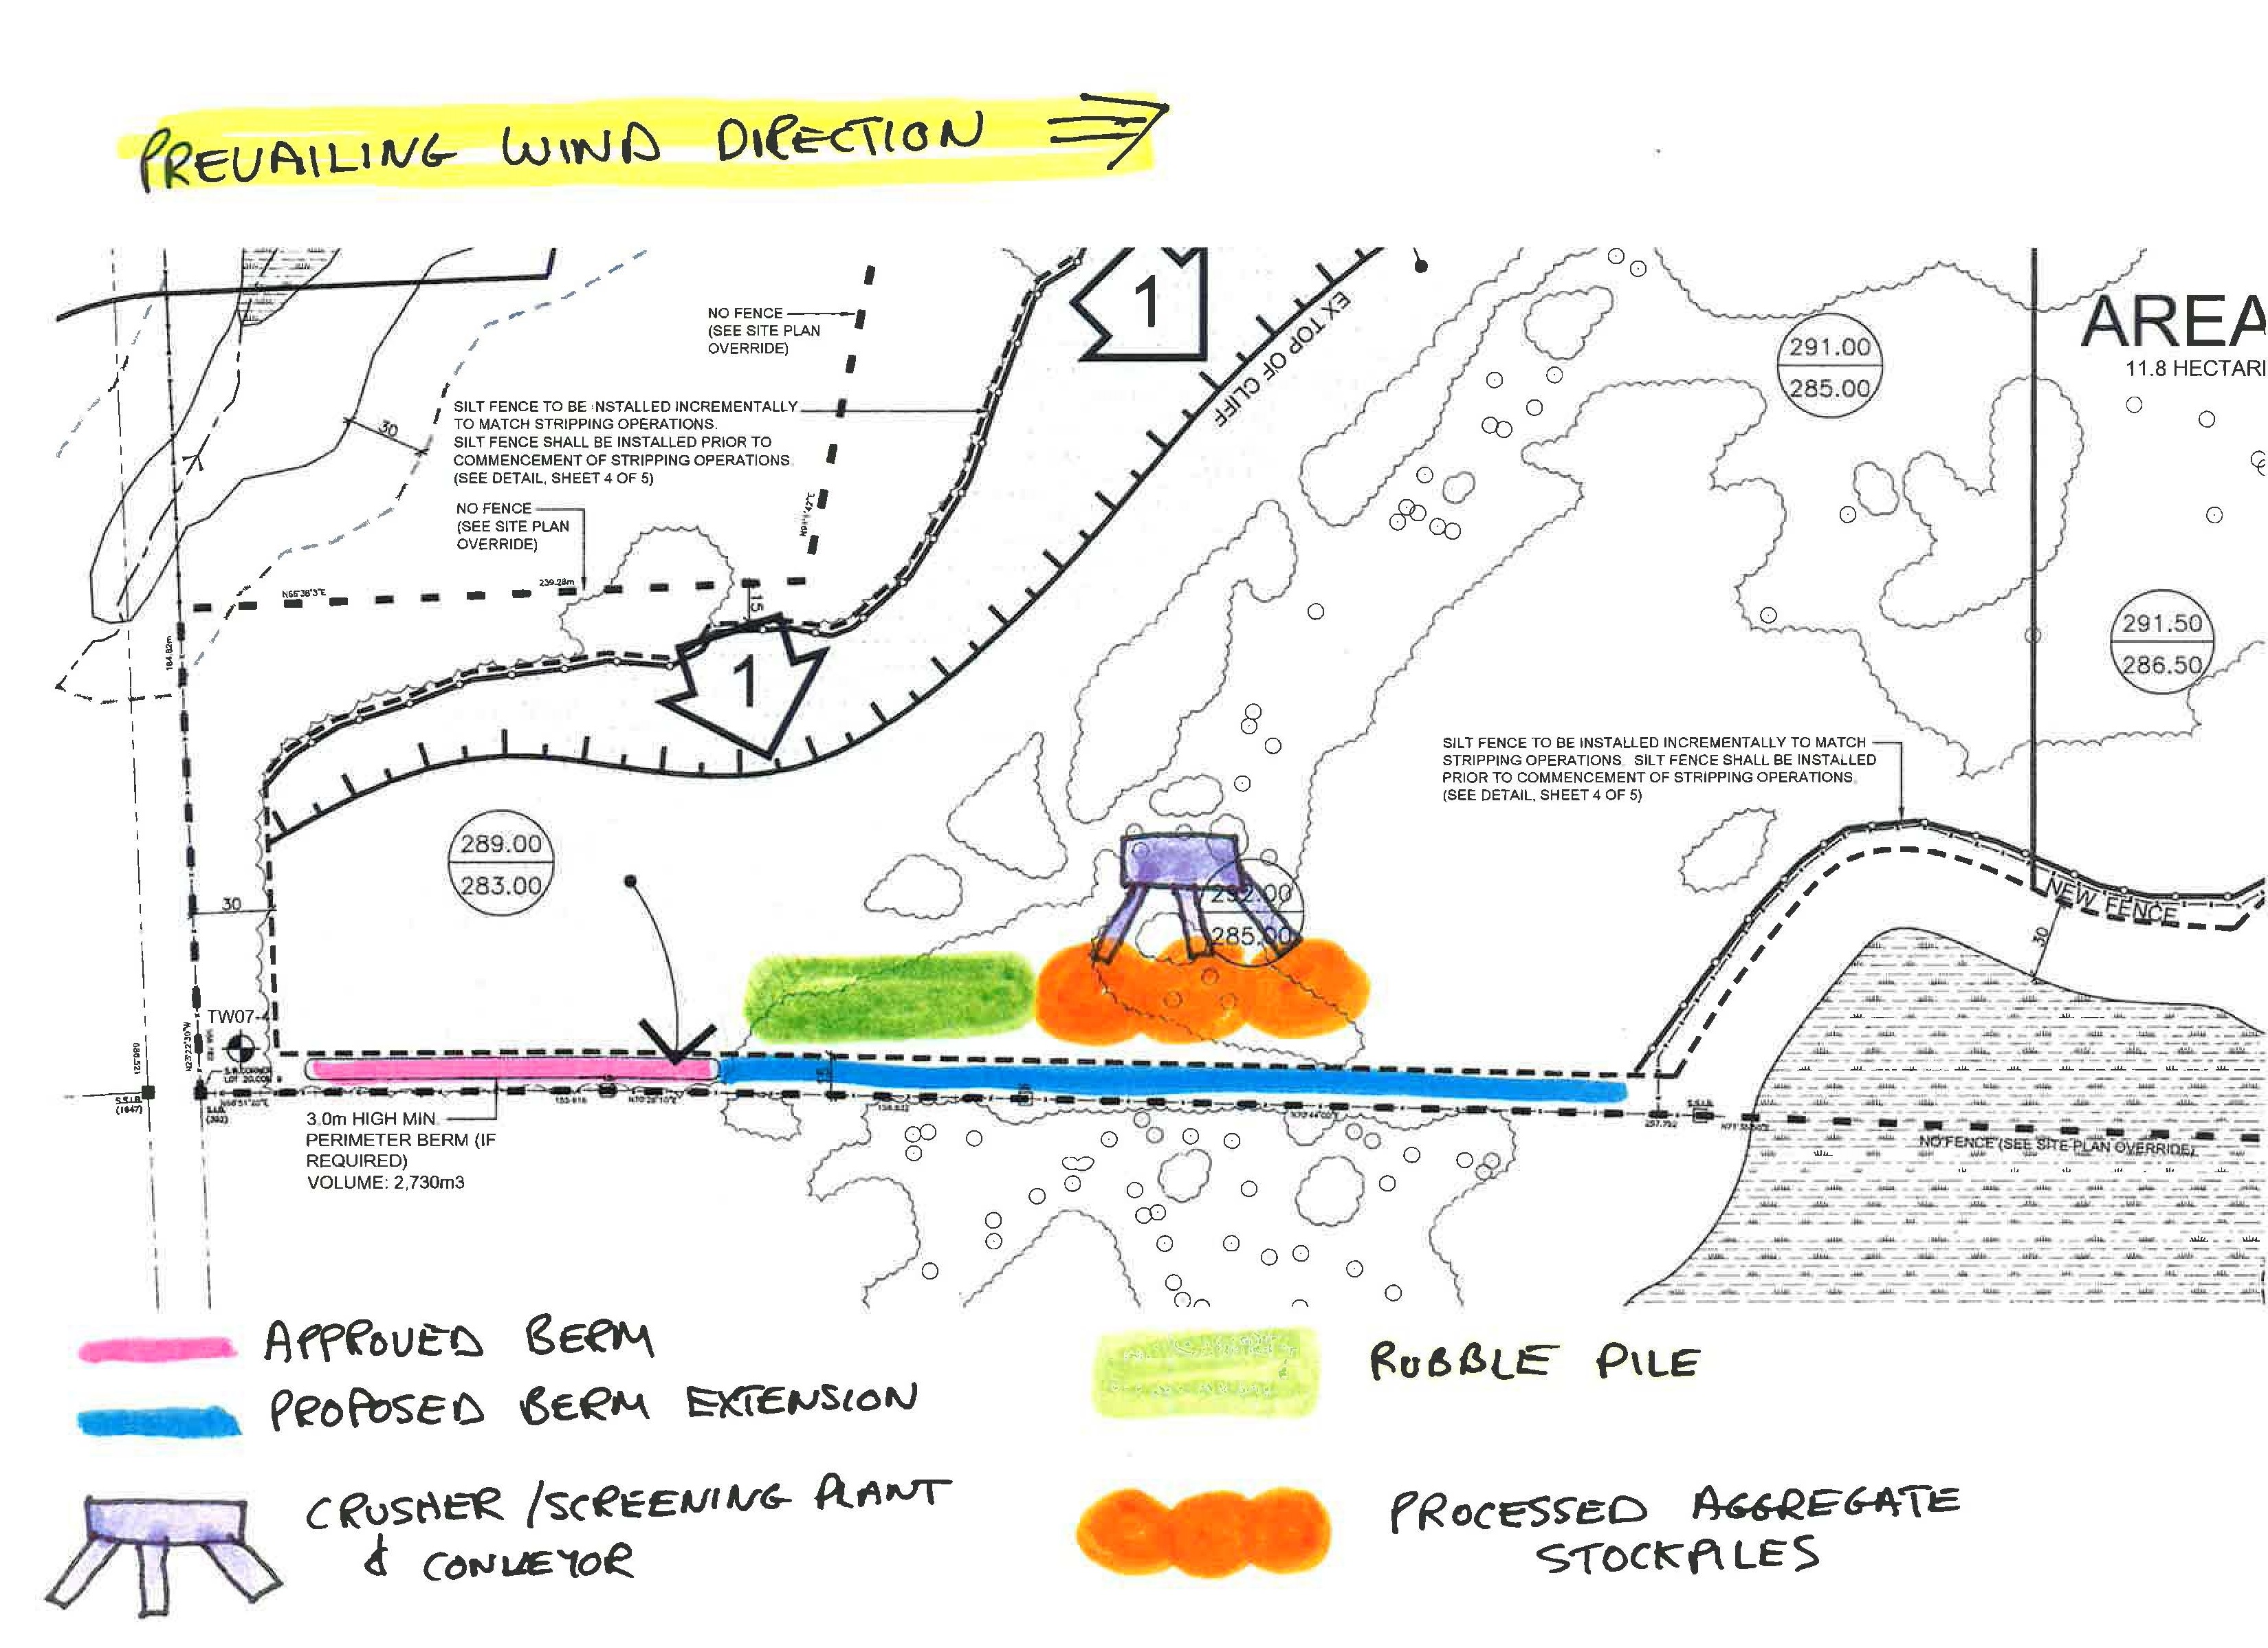 PREVAILING WIND DIRECTION
NO FENCE
(SEE SITE PLAN
OVERRIDE)
1
EX TOP OF CLIFF
291.00
285.00
AREA
11.8 HECTAR
SILT FENCE TO BE INSTALLED INCREMENTALLY
TO MATCH STRIPPING OPERATIONS.
SILT FENCE SHALL BE INSTALLED PRIOR TO
COMMENCEMENT OF STRIPPING OPERATIONS.
(SEE DETAIL, SHEET 4 OF 5)
30
NO FENCE
(SEE SITE PLAN
OVERRIDE)
N66°38'3"E
239.28m
15
1
164.62m
291.50
286.50
SILT FENCE TO BE INSTALLED INCREMENTALLY TO MATCH
STRIPPING OPERATIONS. SILT FENCE SHALL BE INSTALLED
PRIOR TO COMMENCEMENT OF STRIPPING OPERATIONS.
(SEE DETAIL, SHEET 4 OF 5)
289.00
283.00
30
292.00
285.00
NEW FENCE
30
TW07-
15
S.S.I.B.
(1647)
S.I.B.
3.0m HIGH MIN.
PERIMETER BERM (IF
REQUIRED)
VOLUME: 2,730m3
S.S.I.B.
257.792
NO FENCE (SEE SITE PLAN OVERRIDE)
APPROVED BERM
PROPOSED BERM EXTENSION
CRUSHER / SCREENING PLANT
& CONVEYOR
RUBBLE PILE
PROCESSED AGGREGATE
STOCKPILES